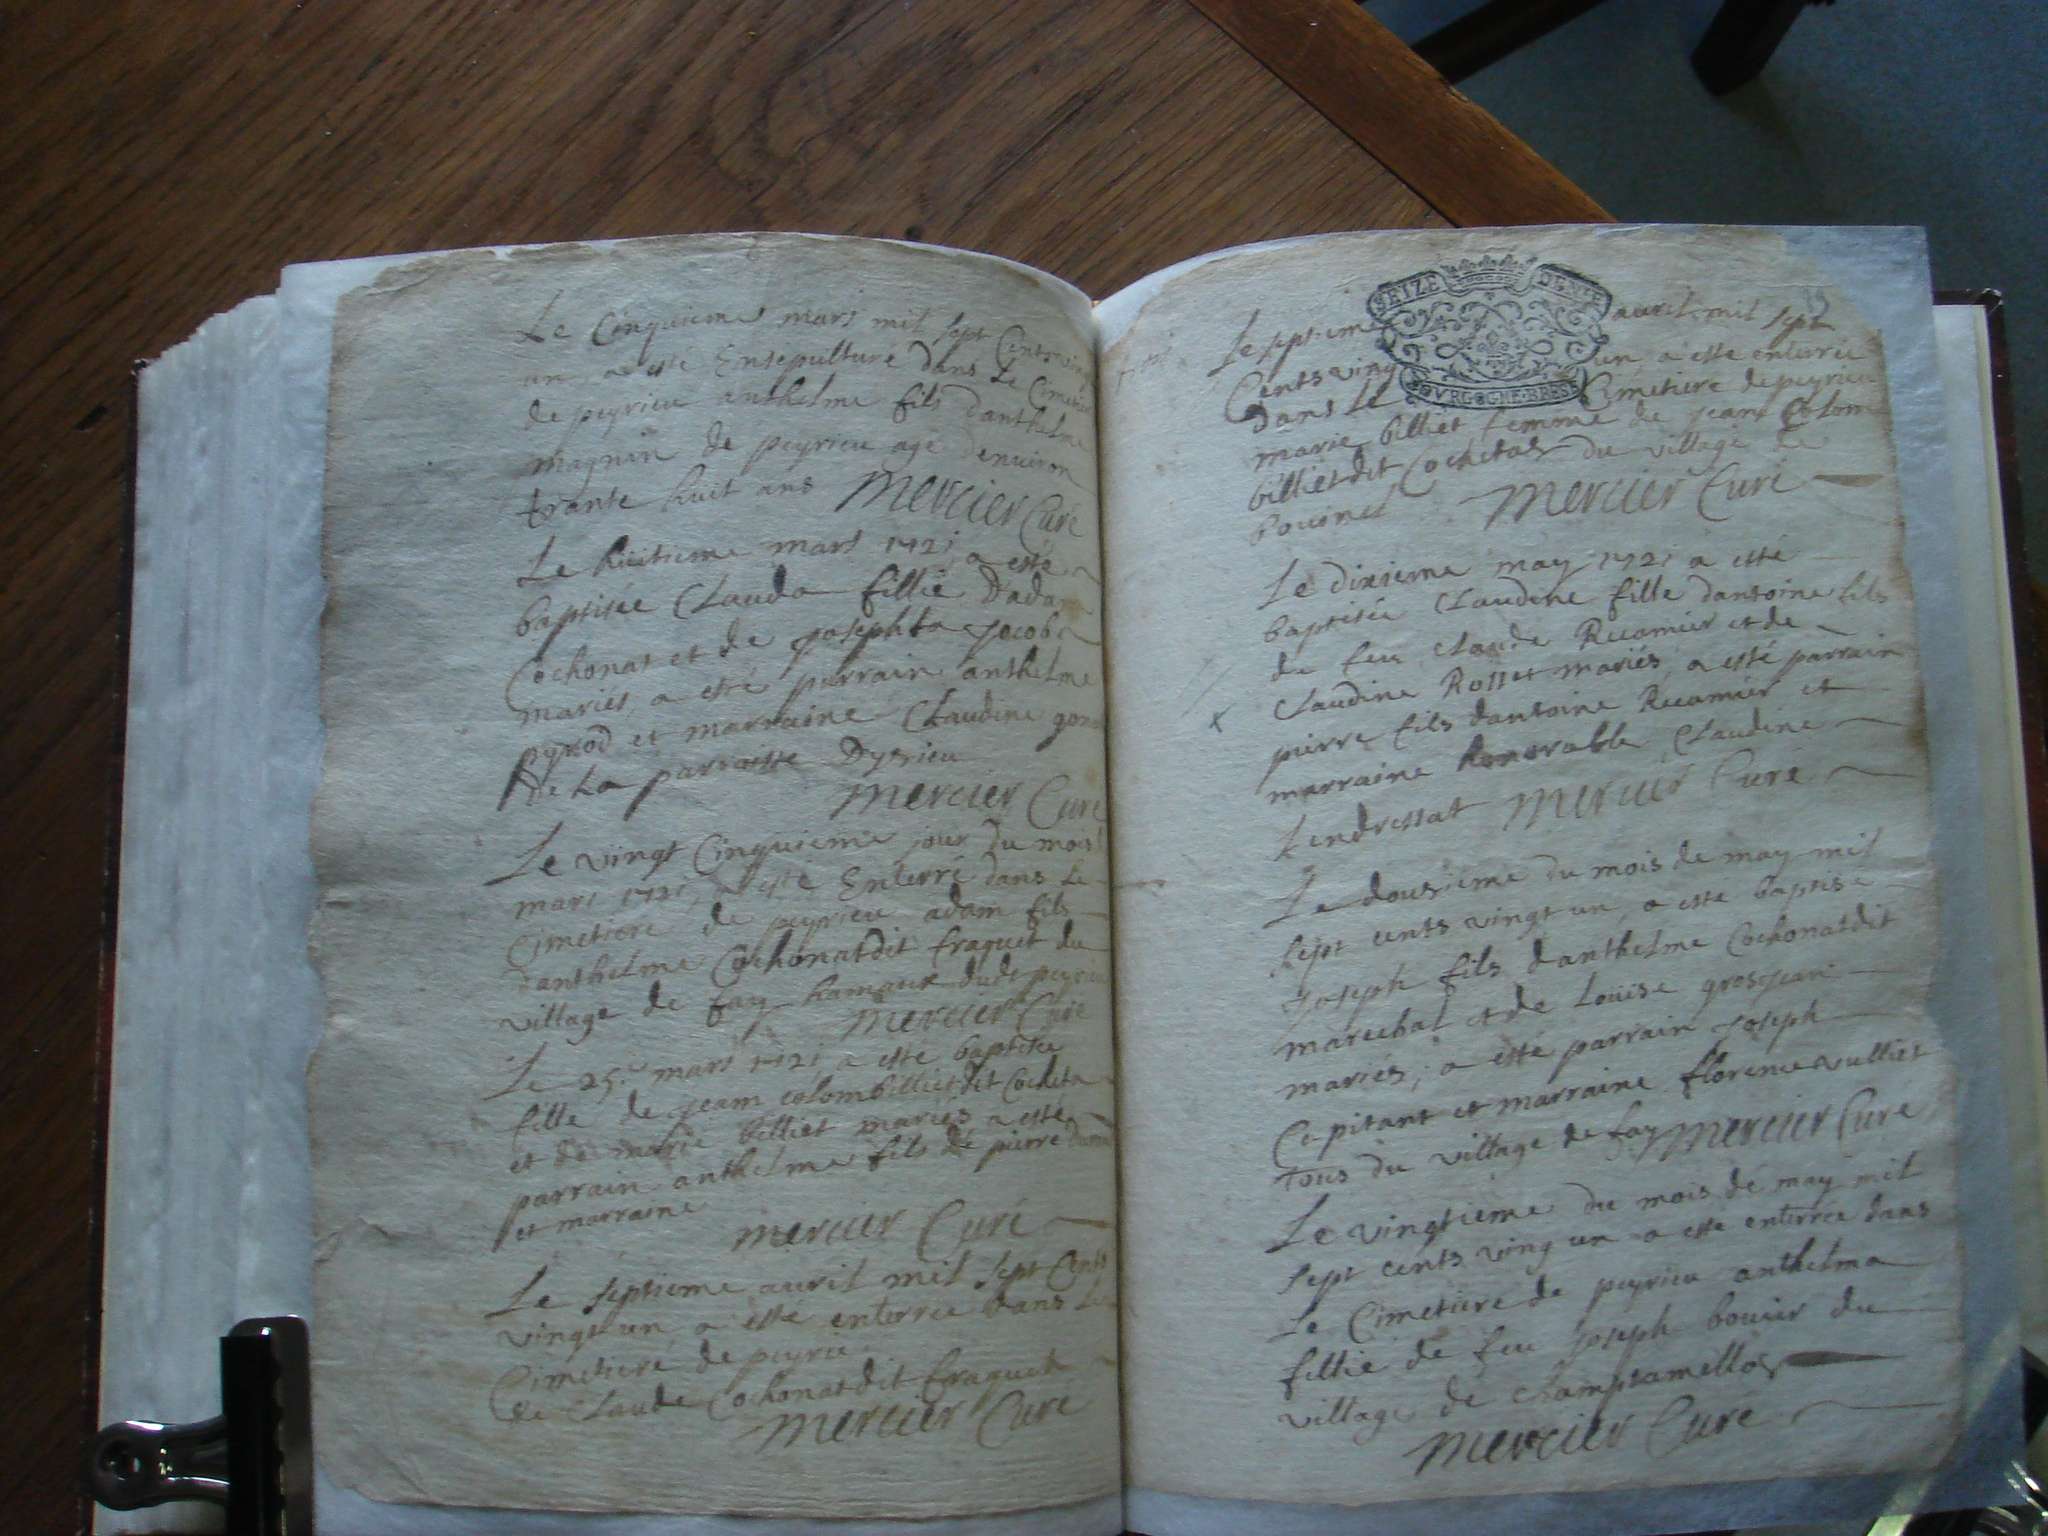 Le Cinquieme mars mil sept Cents vingt
un, a esté Ensepulturé dans le Cimetiere
de peyrieu anthelme fils danthelme
magnin de peyrieu agé denviron
trante huit ans Mercier Curé
Le huitieme mars 1721, a esté
baptisée Clauda fillie d'adam
Cochonat et de Josephta Jacob
mariés, a esté parrain anthelme
pynod et marraine Claudine
de la parroisse Dyzieu
Mercier Curé
Le vingt Cinquieme jour du mois
mars 1721, a esté Enterré dans le
Cimetiere de peyrieu adam fils
danthelme Cochonat dit fraquet du
village de fay hameau dudt peyrieu
Mercier Curé
Le 25.e mars 1721, a esté baptisée
fille de jean colom billiet dit Cocheta
et de marie billiet mariés a esté
parrain anthelme fils de pierre
et marraine
mercier Curé
Le septieme avril mil sept Cents
vingt un, a esté enterrée dans le
Cimetiere de peyrieu
de Claude Cochonat dit fraquet
Mercier Curé
SEIZE DENIE
BOVRGOGNE·BRESSE
Le septieme avril mil sept
Cents ving un a esté enterrée
dans le Cimetiere de peyrieu
marie billiet femme de jean Colom
billiet dit Cochetas du village de
bouinet Mercier Curé
Le dixieme may 1721 a esté
baptisée Claudine fille dantoine fils
de feu Claude Recamier et de
x Claudine Rosset mariés, a esté parrain
pierre fils dantoine Recamier et
marraine honorable Claudine
Lendressat Mercier Curé
Le dousieme du mois de may mil
sept cents vingt un, a esté baptisé
Joseph fils danthelme Cochonat dit
marechal et de Louïse grosjean
mariés, a esté parrain Joseph
Capitant et marraine florence vulliet
tous du village de fay Mercier Curé
Le vingtieme du mois de may mil
sept cents ving un a esté enterrée dans
Le Cimetiere de peyrieu anthelma
fillie de feu Joseph bouvier du
village de Champtamelloz
Mercier Curé